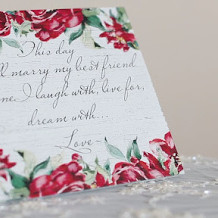 This day
marry my best friend
I laugh with, live for,
dream with...
Love